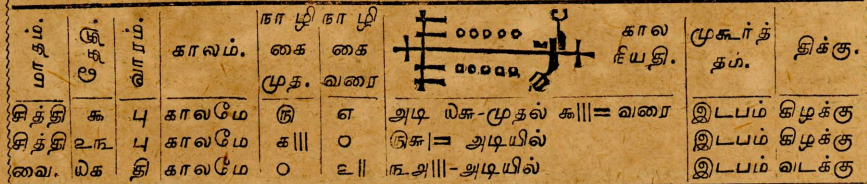 மாதம். தேதி. வாரம். காலம். நாழிகை முத. நாழிகை வரை காலநியதி. முகூர்த்தம். திக்கு.
சித்தி ௬ பு காலமே ௫ ௭ அடி ௰௬-முதல் ௬|||= வரை இடபம் கிழக்கு
சித்தி ௨௩ பு காலமே ௧||| ௦ ௫௬|= அடியில் இடபம் கிழக்கு
வை. ௰௧ தி காலமே ௦ ௨|| ௩௮|||-அடியில் இடபம் வடக்கு